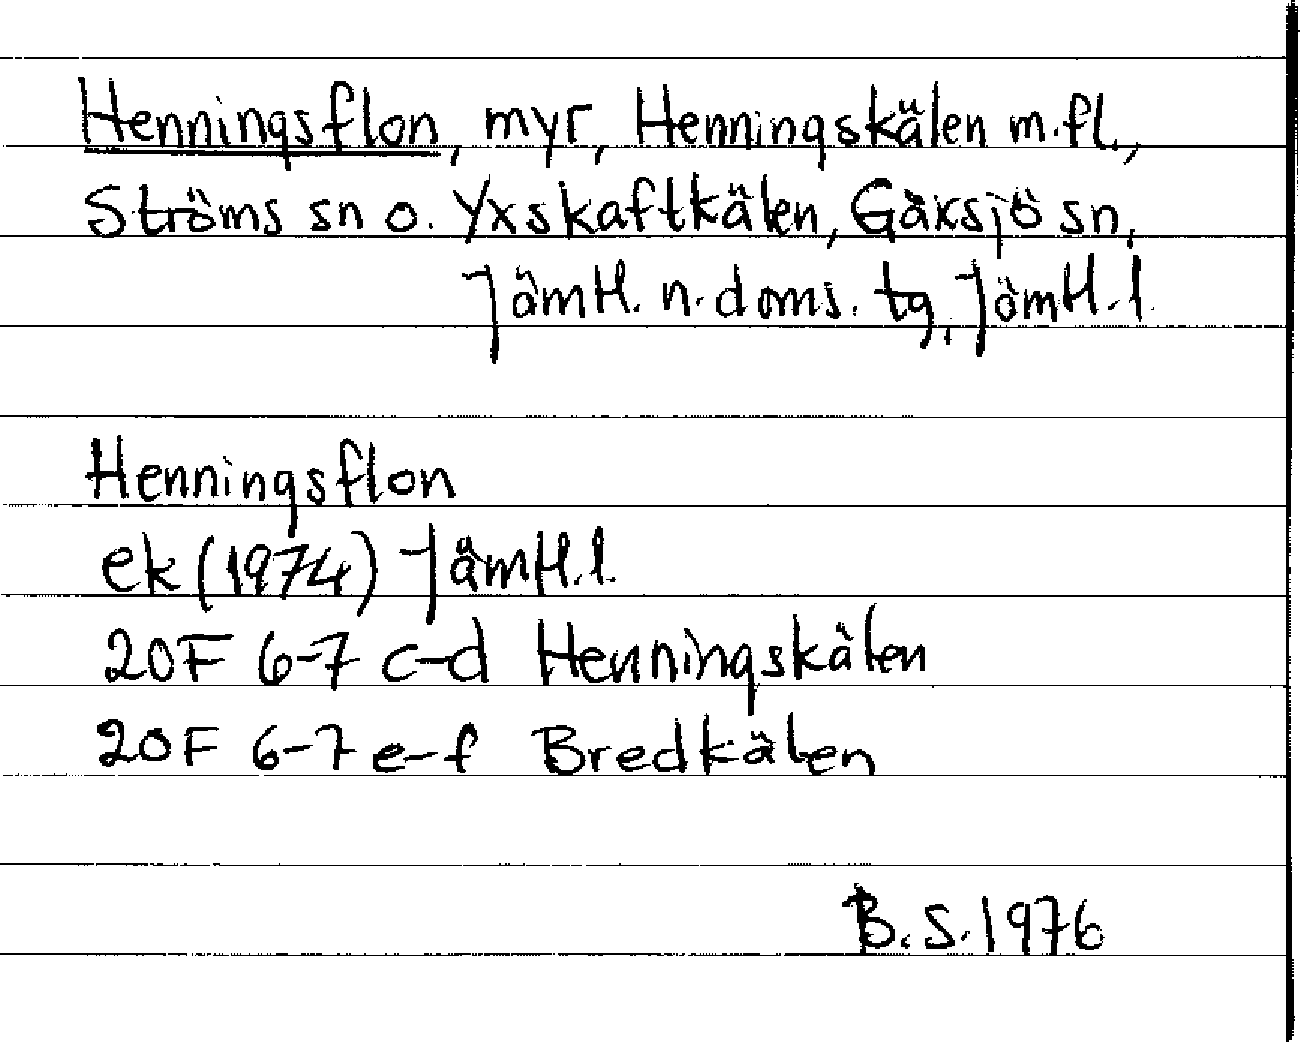 Henningsflon, myr, Henningskälen m.fl.,
Ströms sn o. Yxskaftkälen, Gåxsjö sn,
Jämtl. n. doms. tg, Jämtl. l.
Henningsflon
ek (1974) Jämtl. l.
20F 6-7 c-d Henningskälen
20F 6-7 e-f Bredkälen
B.S. 1976